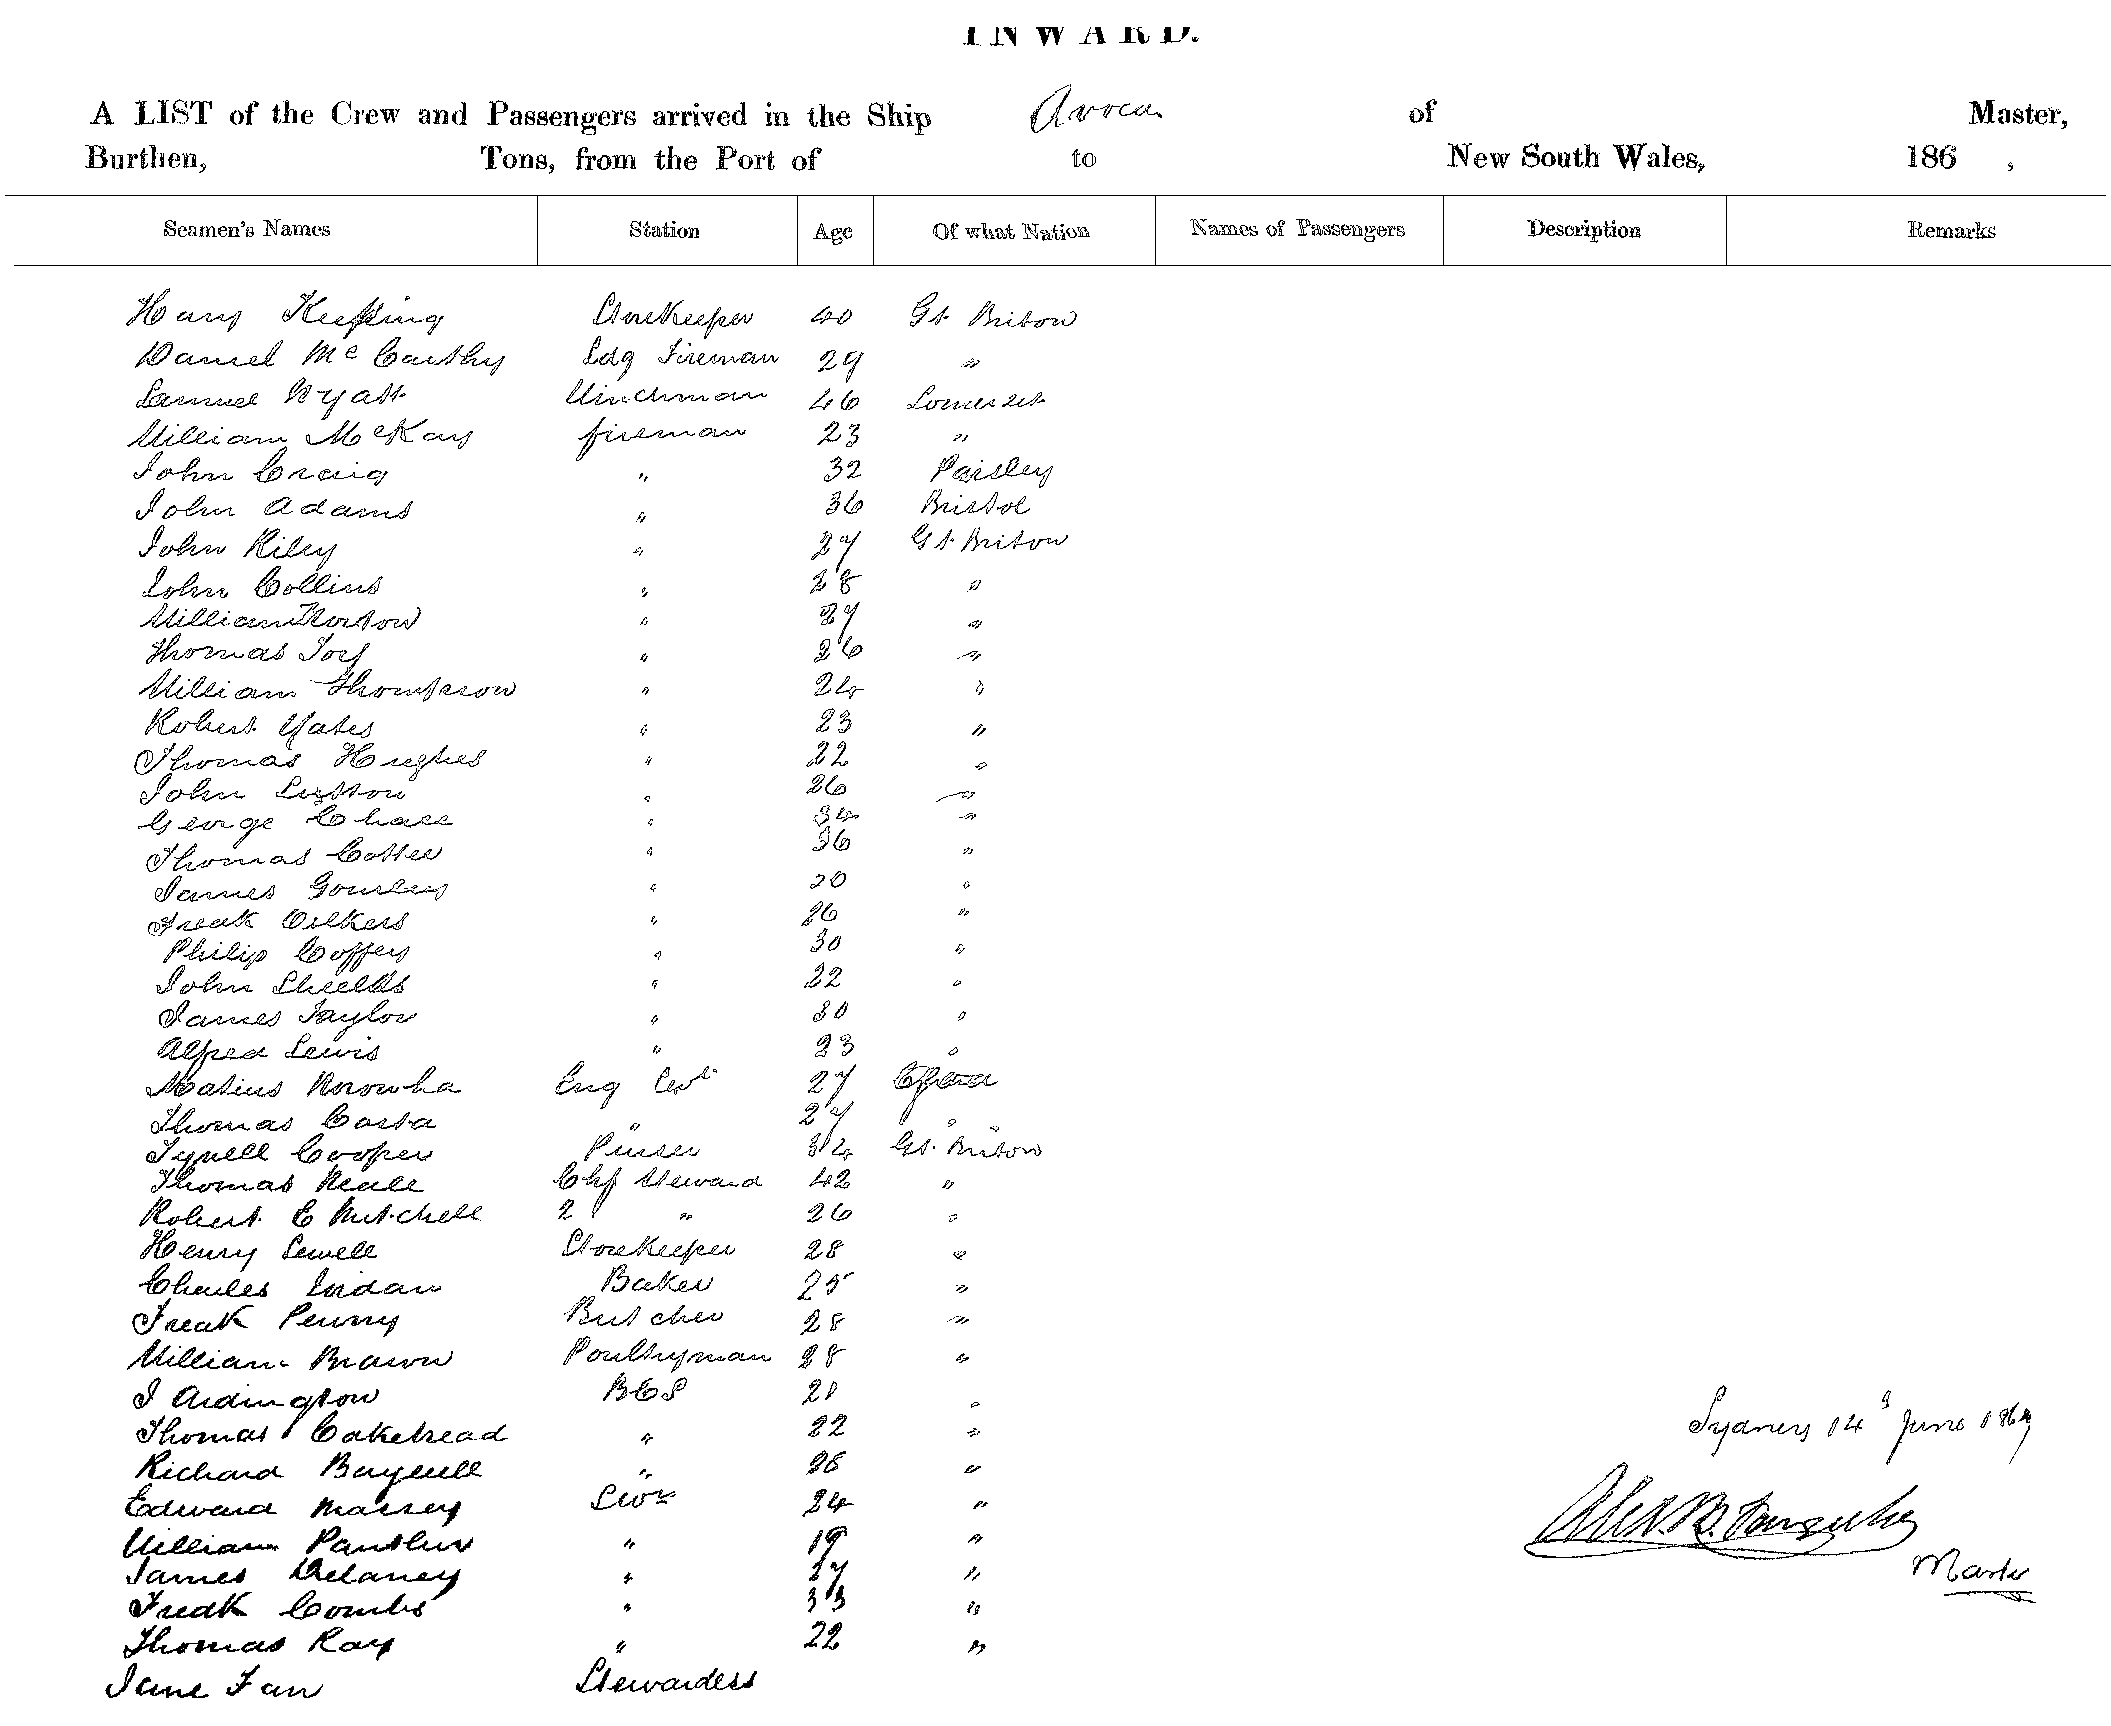 INWARD.
A LIST of the Crew and Passengers arrived in the Ship Avoca of Master,
Burthen, Tons, from the Port of to New South Wales, 186 ,
Seamen's Names Station Age Of what Nation Names of Passengers Description Remarks
Harry Storekeeper 40 Gt. Briton
Daniel McCarthy Ldg Fireman 29 "
Samuel Wyatt Winchman 46 Somerset
William McKay fireman 23 "
John Craig " 32 Paisley
John Adams " 36 Bristol
John Riley " 27 Gt. Briton
John Collins " 28 "
William Horton " 27 "
Thomas " 26 "
William Thompson " 24 "
Robert Yates " 23 "
Thomas Hughes " 22 "
John " 26 "
George Chase " 34 "
Thomas Cottee " 36 "
James Gourley " 20 "
Fredk Oilkers " 26 "
Philip Coffey " 30 "
John Shields " 22 "
James Taylor " 30 "
Alfred Lewis " 23 "
Matius Eng 27
Thomas Costa " 27 " "
Tyrell Cooper Purser 34 Gt. Briton
Thomas Neale Chf Steward 42 "
Robert C Mitchell 2 " 26 "
Henry Sewell Storekeeper 28 "
Charles Jordan Baker 25 "
Fredk Penny Butcher 28 "
William Brown Poultryman 28 "
J Ardington BCS 21 "
Thomas Cakebread " 22 "
Richard " 26 "
Edward Massey 24 "
William " 19 "
James Delaney " 27 "
Fredk Combs " 33 "
Thomas Ray " 22 "
Jane Stewardess
Sydney 14 June 1869
Master